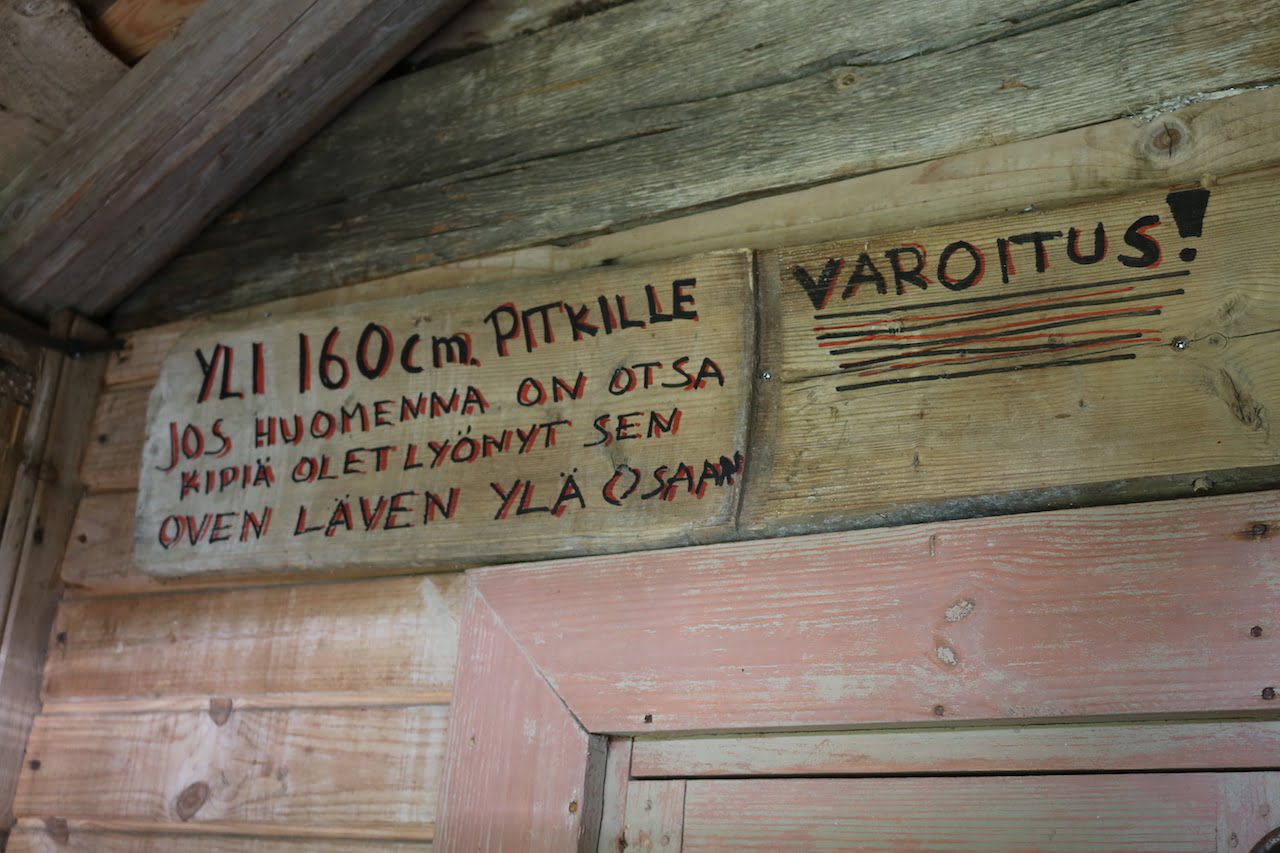 YLI 160cm. PITKILLE
JOS HUOMENNA ON OTSA
KIPIÄ OLET LYÖNYT SEN
OVEN LÄVEN YLÄ OSAAN
VAROITUS!